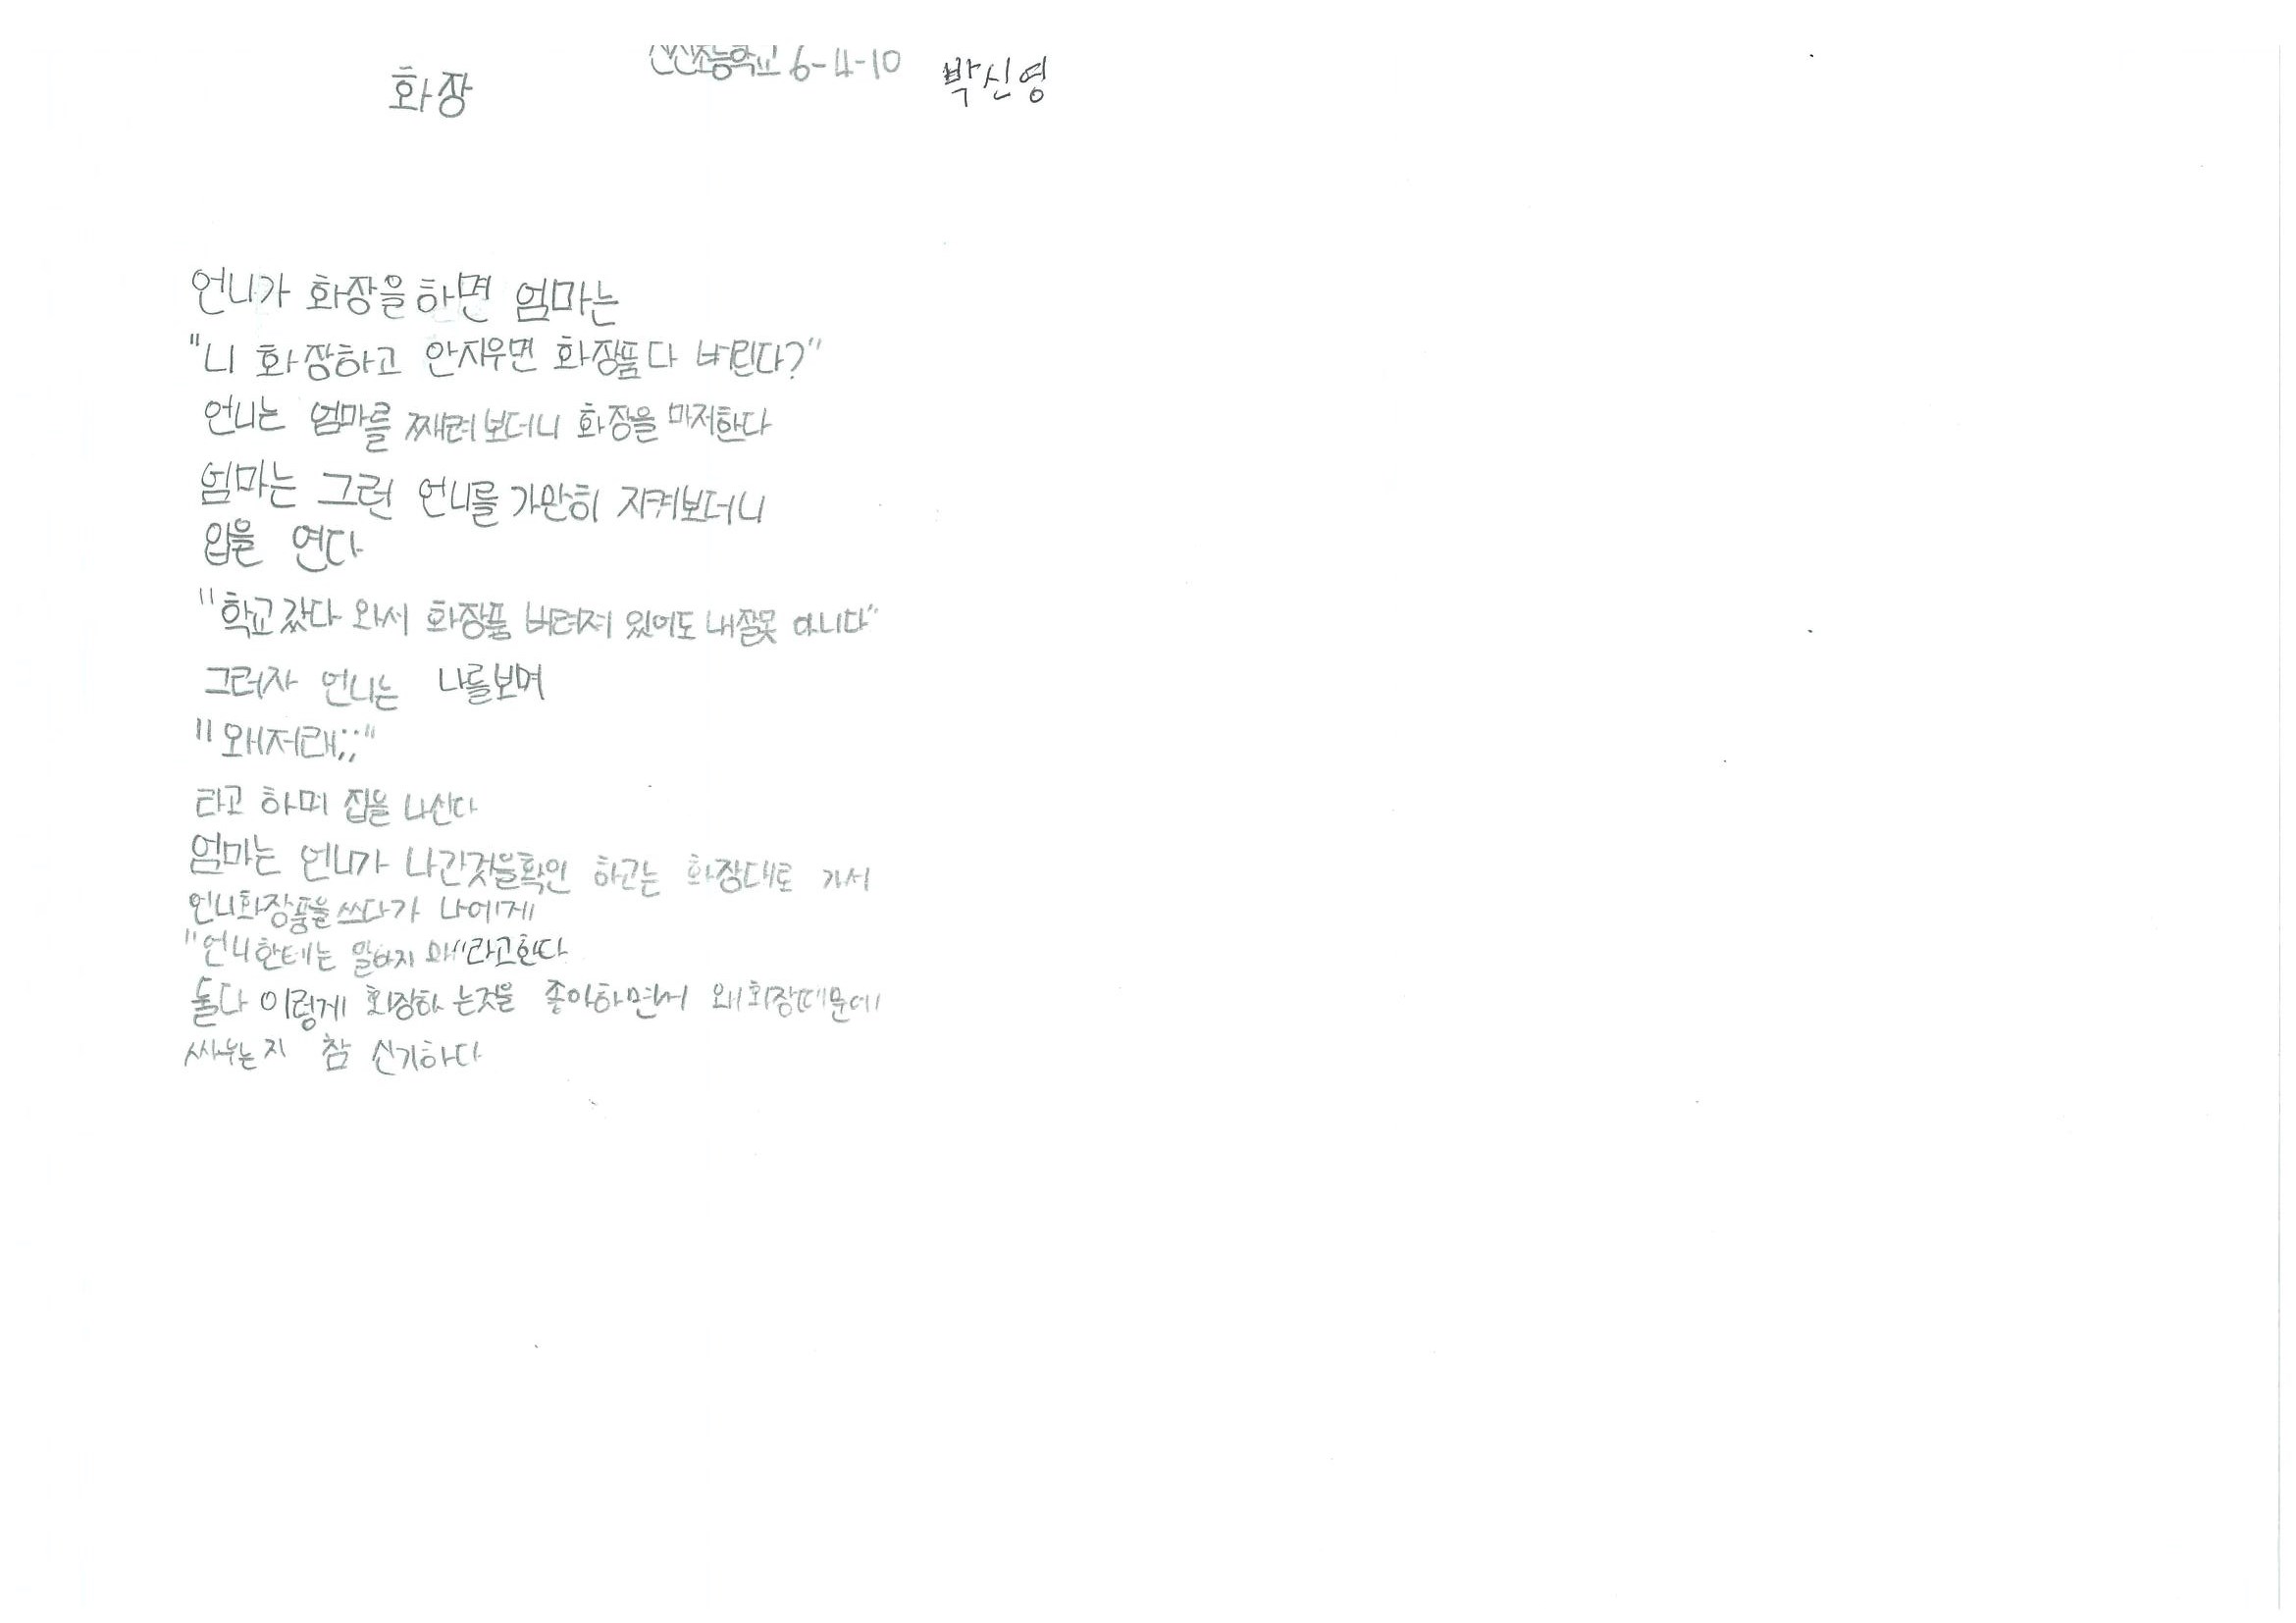 화장
초등학교 6-4-10 박신영
언니가 화장을하면 엄마는
"니 화장하고 안지우면 화장품다 버린다?"
언니는 엄마를 째려보더니 화장을 마저한다
엄마는 그런 언니를 가만히 지켜보더니
입을 연다
"학교갔다 와서 화장품 버려져 있어도 내잘못 아니다"
그러자 언니는 나를보며
"왜저래;;"
라고 하며 집을 나선다
엄마는 언니가 나간것을확인 하고는 화장대로 가서
언니화장품을쓰다가 나에게
"언니한테는 말하지 마"라고한다
둘다 이렇게 화장하는것을 좋아하면서 왜화장때문에
싸우는지 참 신기하다